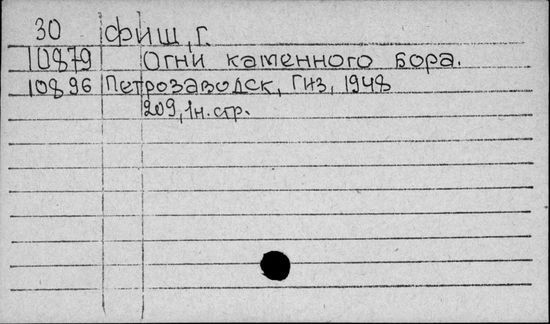 30 Фиш, г.
10879 Огни каменного бора.
10896 Петрозаводск, Гиз, 1948
209, 1н. стр.